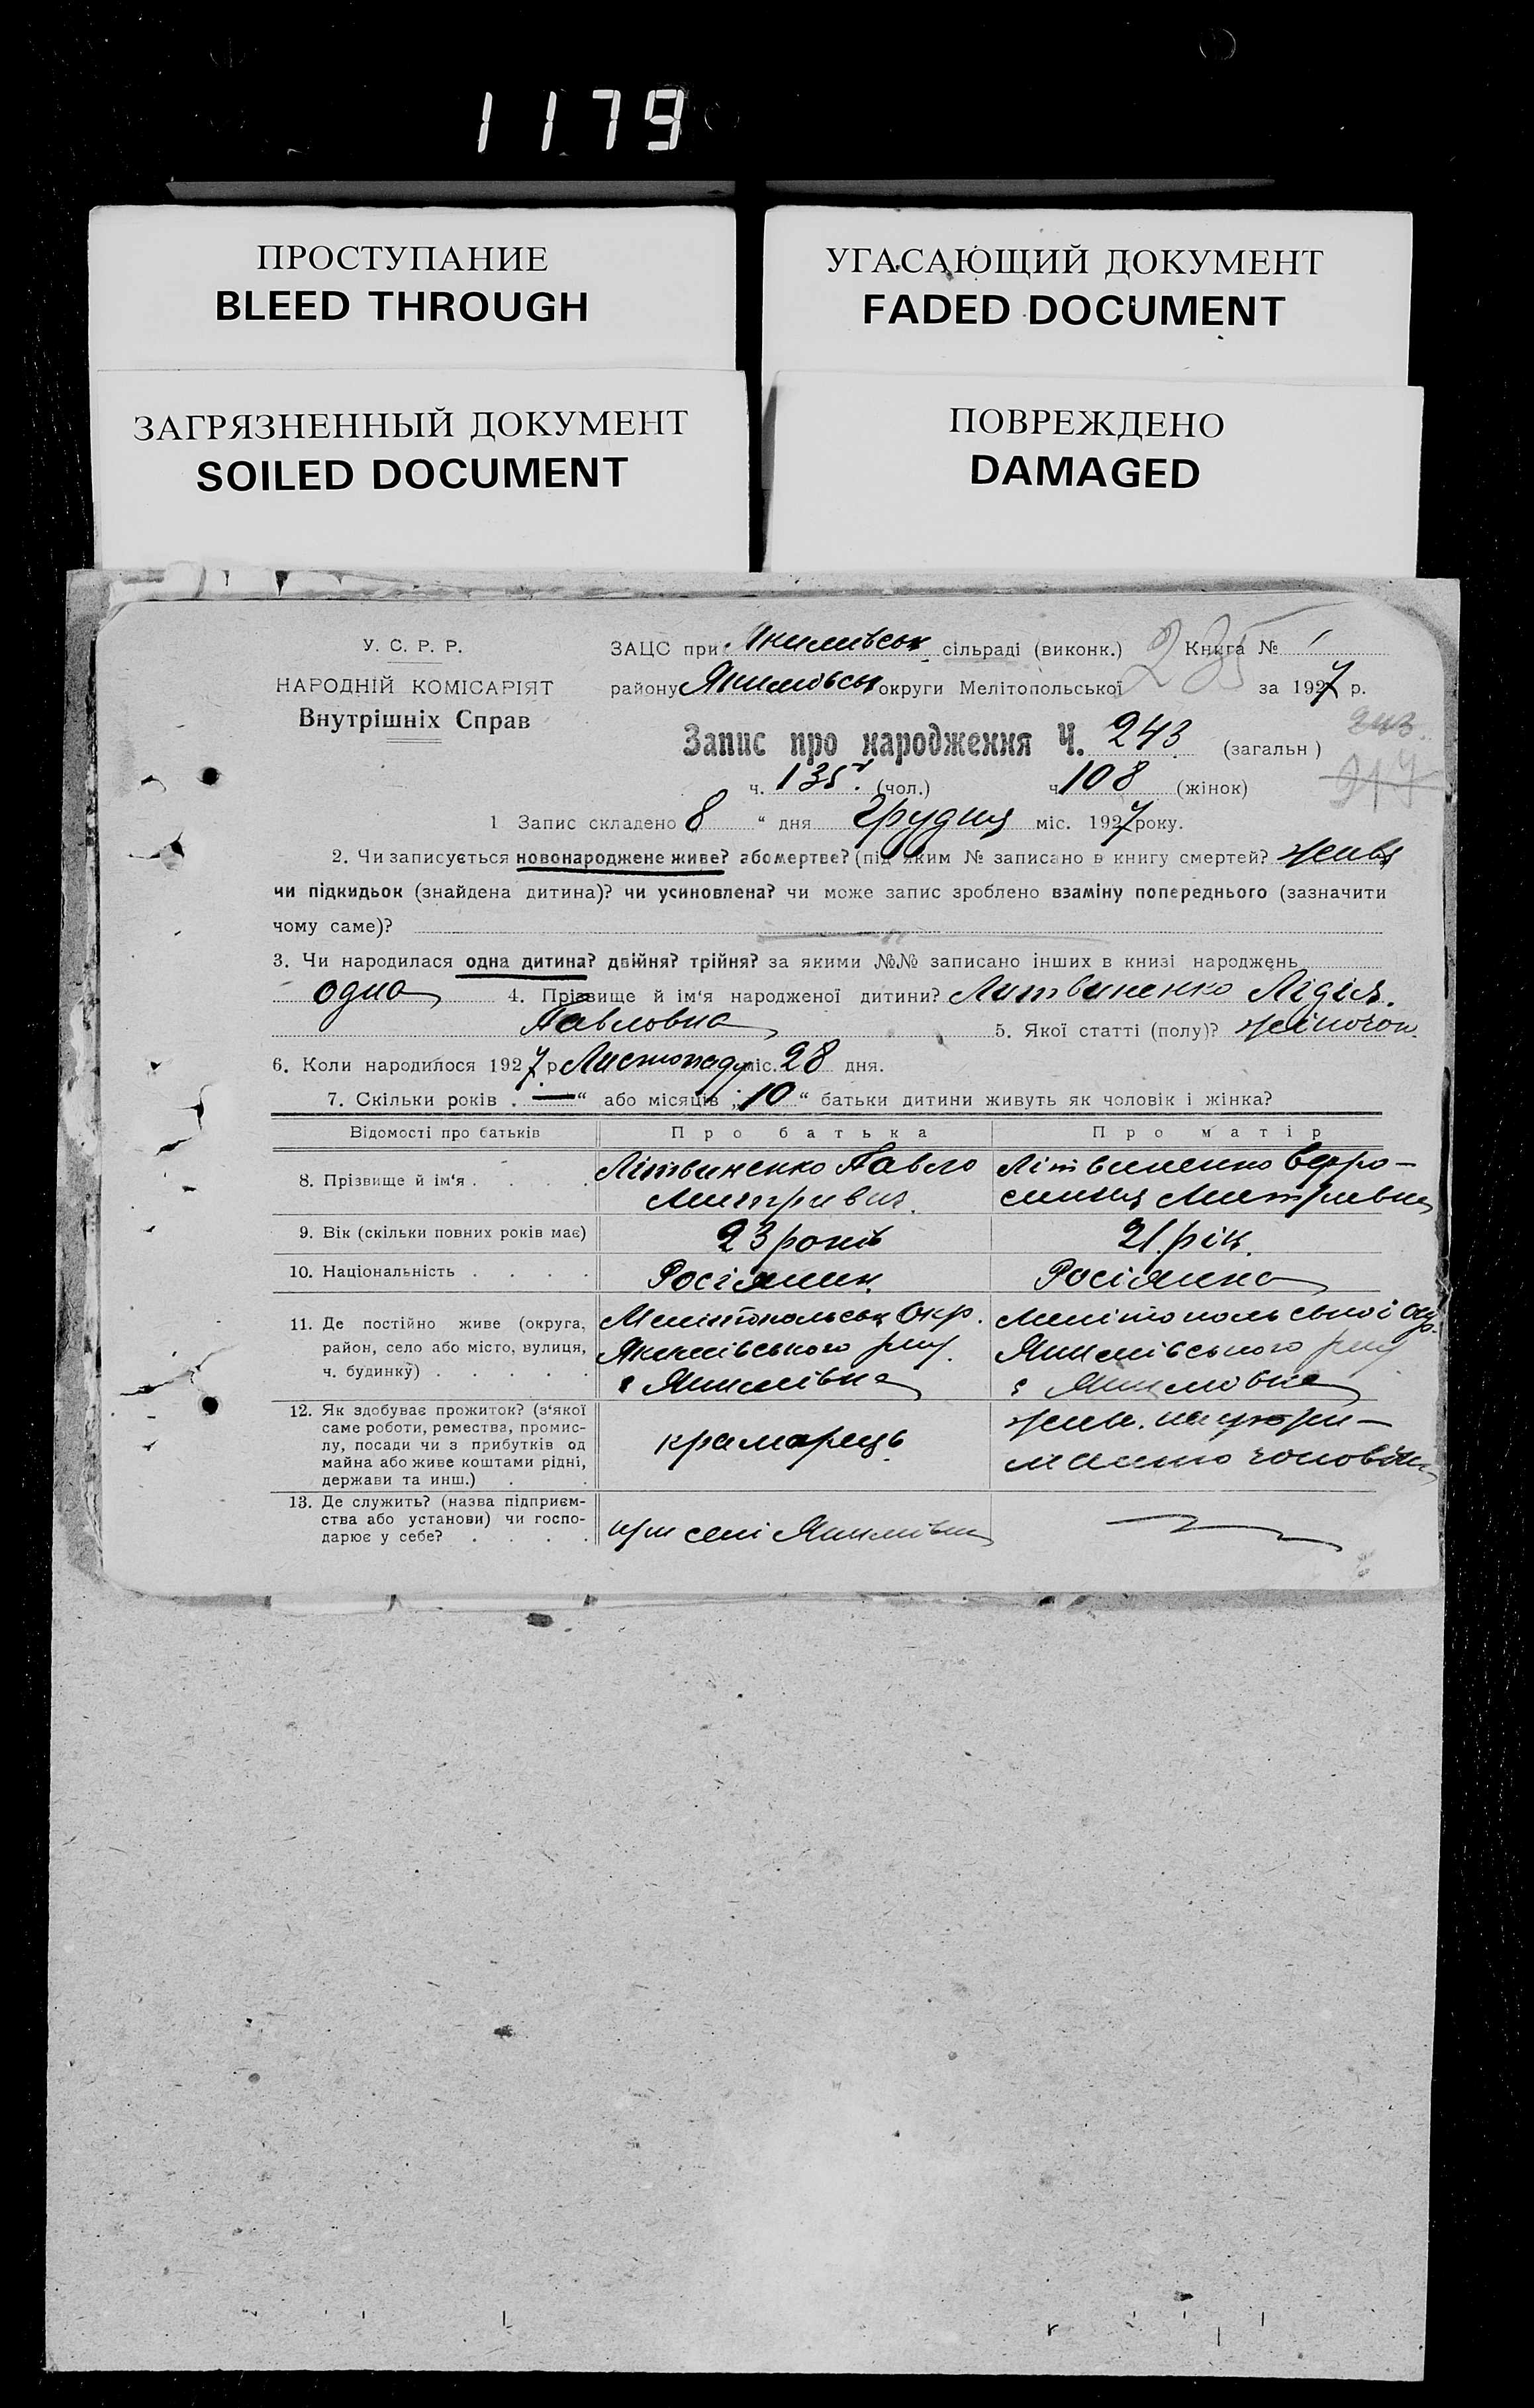 1179
ПРОСТУПАНИЕ
BLEED THROUGH
УГАСАЮЩИЙ ДОКУМЕНТ
FADED DOCUMENT
ЗАГРЯЗНЕННЫЙ ДОКУМЕНТ
SOILED DOCUMENT
ПОВРЕЖДЕНО
DAMAGED
У. С. Р. Р.
НАРОДНІЙ КОМІСАРІЯТ
Внутрішніх Справ
ЗАЦС при Якимівськ сільраді (виконк.) 235 Книга № 1
району Якимівськ округи Мелітопольської за 1927 р.
Запис про народження Ч. 243 (загальн) 243
ч. 135 (чол.) ч 108 (жінок)
1 Запис складено 8 " дня Грудня міс. 1927 року.
2. Чи записується новонароджене живе? або мертве? (під яким № записано в книгу смертей? живе
чи підкидьок (знайдена дитина)? чи усиновлена? чи може запис зроблено взаміну попереднього (зазначити
чому саме)?
3. Чи народилася одна дитина? двійня? трійня? за якими №№ записано інших в книзі народжень
одна 4. Прізвище й ім'я народженої дитини? Литвиненко Лідія
Павловна 5. Якої статті (полу)? жіночої
6. Коли народилося 1927 р. Листопаду міс. 28 дня.
7. Скільки років . — " або місяців „ 10 " батьки дитини живуть як чоловік і жінка?
Відомості про батьків Про батька Про матір
8. Прізвище й ім'я . . . . Літвиненко Павло Літвиненко Ефро-
Митривич. синия Митривна
9. Вік (скільки повних років має) 23 років 21 рік.
10. Національність . . . . Росіянин. Росіянка
11. Де постійно живе (округа, Мелітопольськ Окр. Мелітопольської Окр.
район, село або місто, вулиця, Якимівського рну. Якимівського рну
ч. будинку) . . . . . с Якимівка с Якимовка
12. Як здобуває прожиток? (з'якої
саме роботи, ремества, промис-
лу, посади чи з прибутків од
майна або живе коштами рідні,
держави та инш.) . .
крамарець
живе. на утри-
манню чоловіка
13. Де служить? (назва підприєм-
ства або установи) чи госпо-
дарює у себе? . . . .
при селі Якимівка